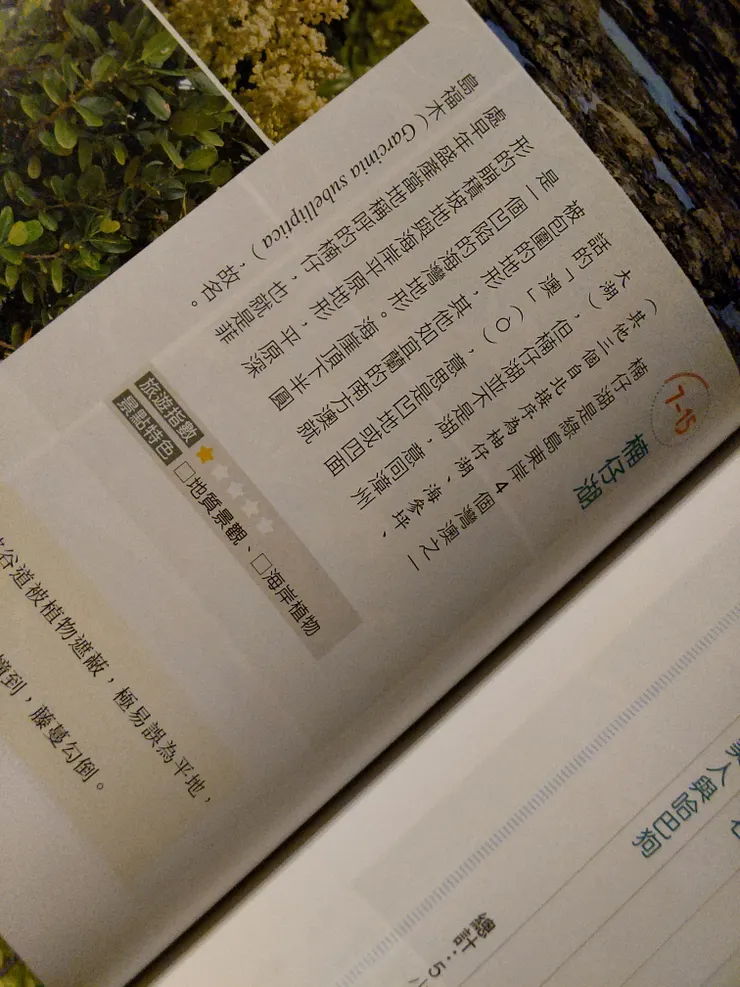 7-15
楠仔湖
楠仔湖是綠島東岸4個灣澳之一
(其他三個自北接序為柚仔湖、海參坪、
大湖),但楠仔湖並不是湖,意同漳州
話的「澳」(O),意思是凹地或四面
被包圍的地形,其他如宜蘭的南方澳就
是一個凹陷的海灣地形。海崖頂下半圓
形的崩積坡地與海岸平原地形,平原深
處早年盛產當地稱呼的楠仔,也就是菲
島福木(Garcinia subelliptica),故名。
旅遊指數
景點特色 □地質景觀、□海岸植物
谷道被植物遮蔽,極易誤為平地,
到,藤蔓勾倒。
美人與哈巴狗
總計:5